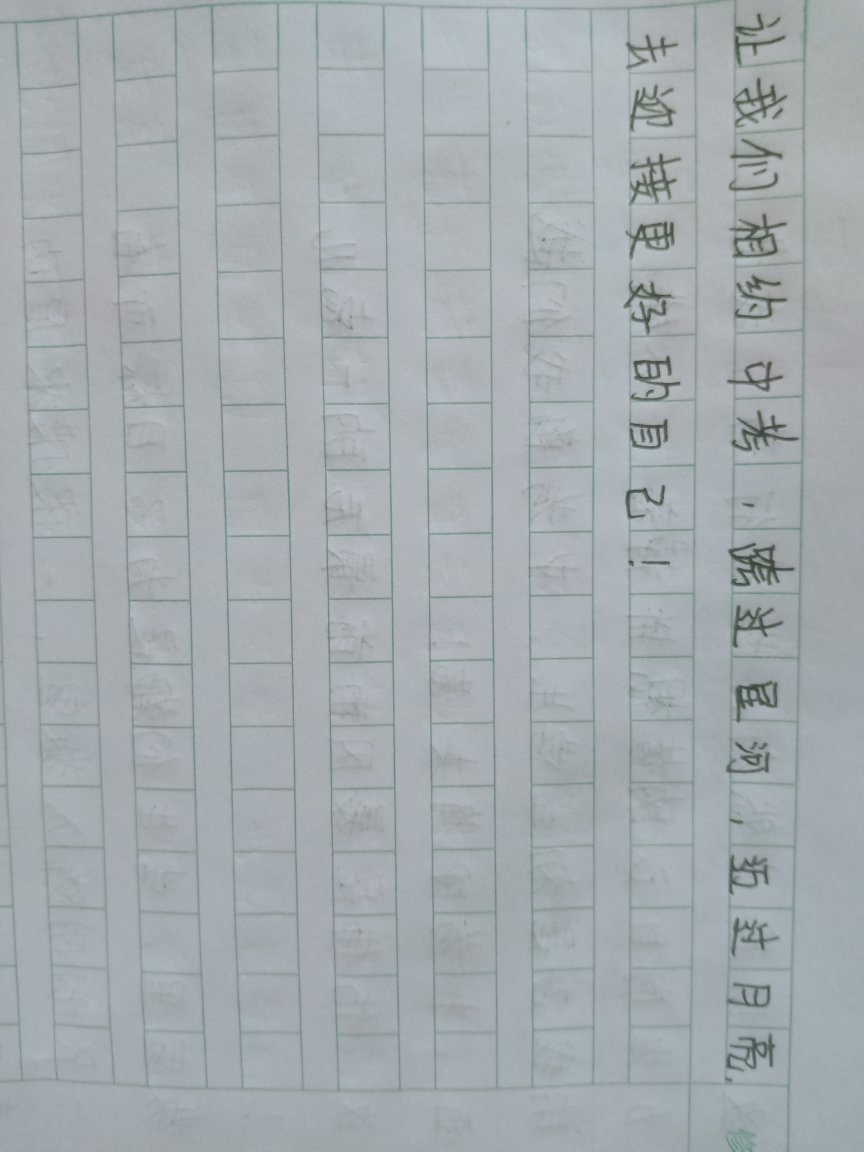 让我们相约中考，跨过星河，迈过月亮，
去迎接更好的自己！